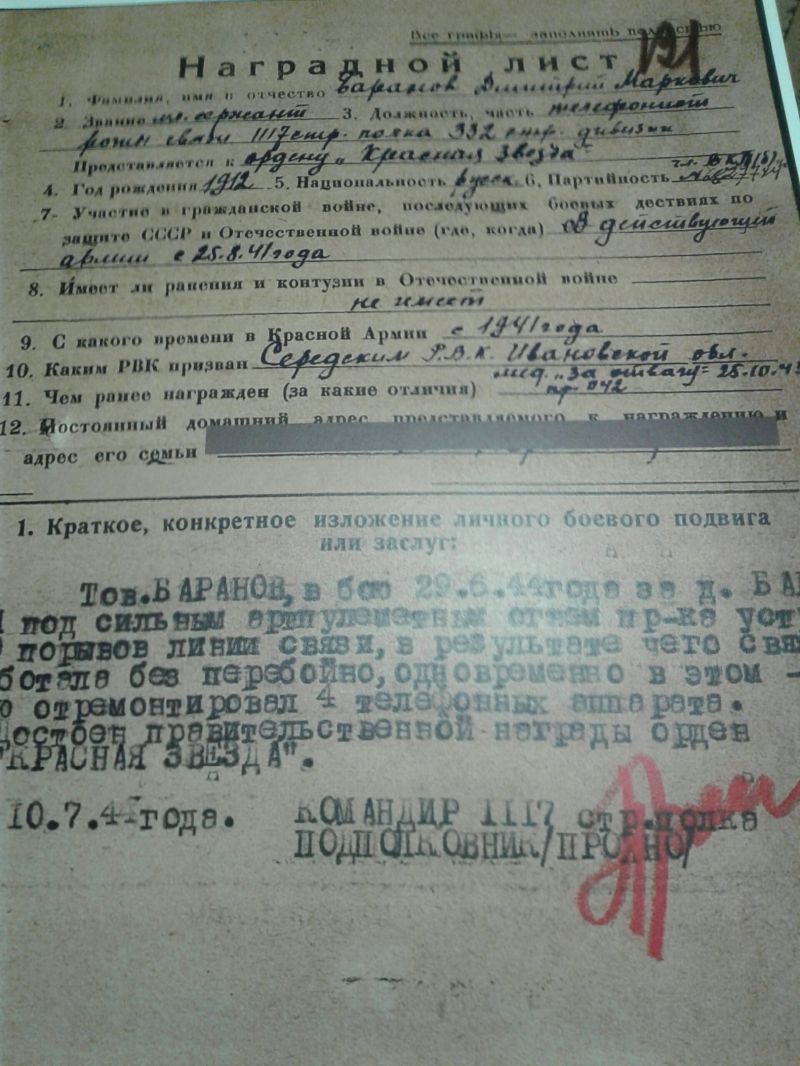 Все графы — заполнять полностью
191
Наградной лист
1. Фамилия, имя и отчество Баранов Дмитрий Маркович
2. Звание мл. сержант 3. Должность, часть телефонист
роты связи 1117 стр. полка 332 стр. дивизии
Представляется к ордену „Красная Звезда"
4. Год рождения 1912 5. Национальность русск. 6. Партийность чл. ВКП(б)
7. Участие в гражданской войне, последующих боевых дествиях по
защите СССР и Отечественной войне (где, когда) В действующей
армии с 25.8.41года
8. Имеет ли ранения и контузии в Отечественной войне
не имеет
9. С какого времени в Красной Армии с 1941года
10. Каким РВК призван Середским Р.В.К. Ивановской обл.
мед. „за отвагу" 25.10.43
11. Чем ранее награжден (за какие отличия) пр. 042
12. Постоянный домашний адрес представляемого к награждению и
адрес его семьи
1. Краткое, конкретное изложение личного боевого подвига
или заслуг:
Тов.БАРАНОВ, в бою 29.6.44года за д. БА
под сильным артпулеметным огнем пр-ка уст
порывов линии связи, в результате чего свя
ботала без перебойно, одновременно в этом -
о отремонтировал 4 телефонных аппарата.
Достоен правительственной награды орден
"КРАСНАЯ ЗВЕЗДА".
10.7.44года. КОМАНДИР 1117 стр.полка
ПОДПОЛКОВНИК/ПРОХНО/